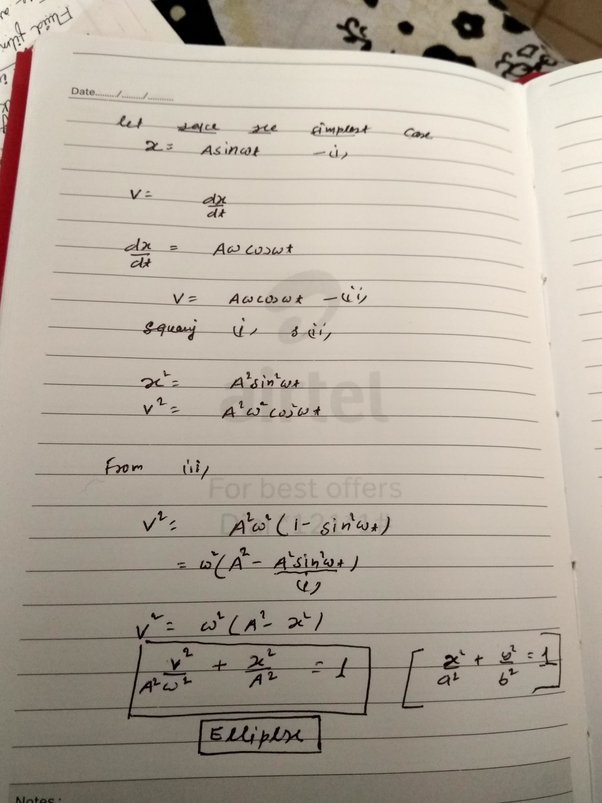 Fluid film
Date......./......./...........
let solve the simplest case
x = A sin ωt — (i)
v = dx/dt
dx/dt = Aω cos ωt
v = Aω cos ωt — (ii)
Squaring (i) & (ii)
x² = A² sin² ωt
v² = A² ω² cos² ωt
airtel
From (ii)
For best offers
v² = A² ω² (1 - sin² ωt)
= ω² (A² - A² sin² ωt)
(i)
v² = ω² (A² - x²)
v²/A²ω² + x²/A² = 1 [ x²/a² + y²/b² = 1 ]
Elliplse
Notes :